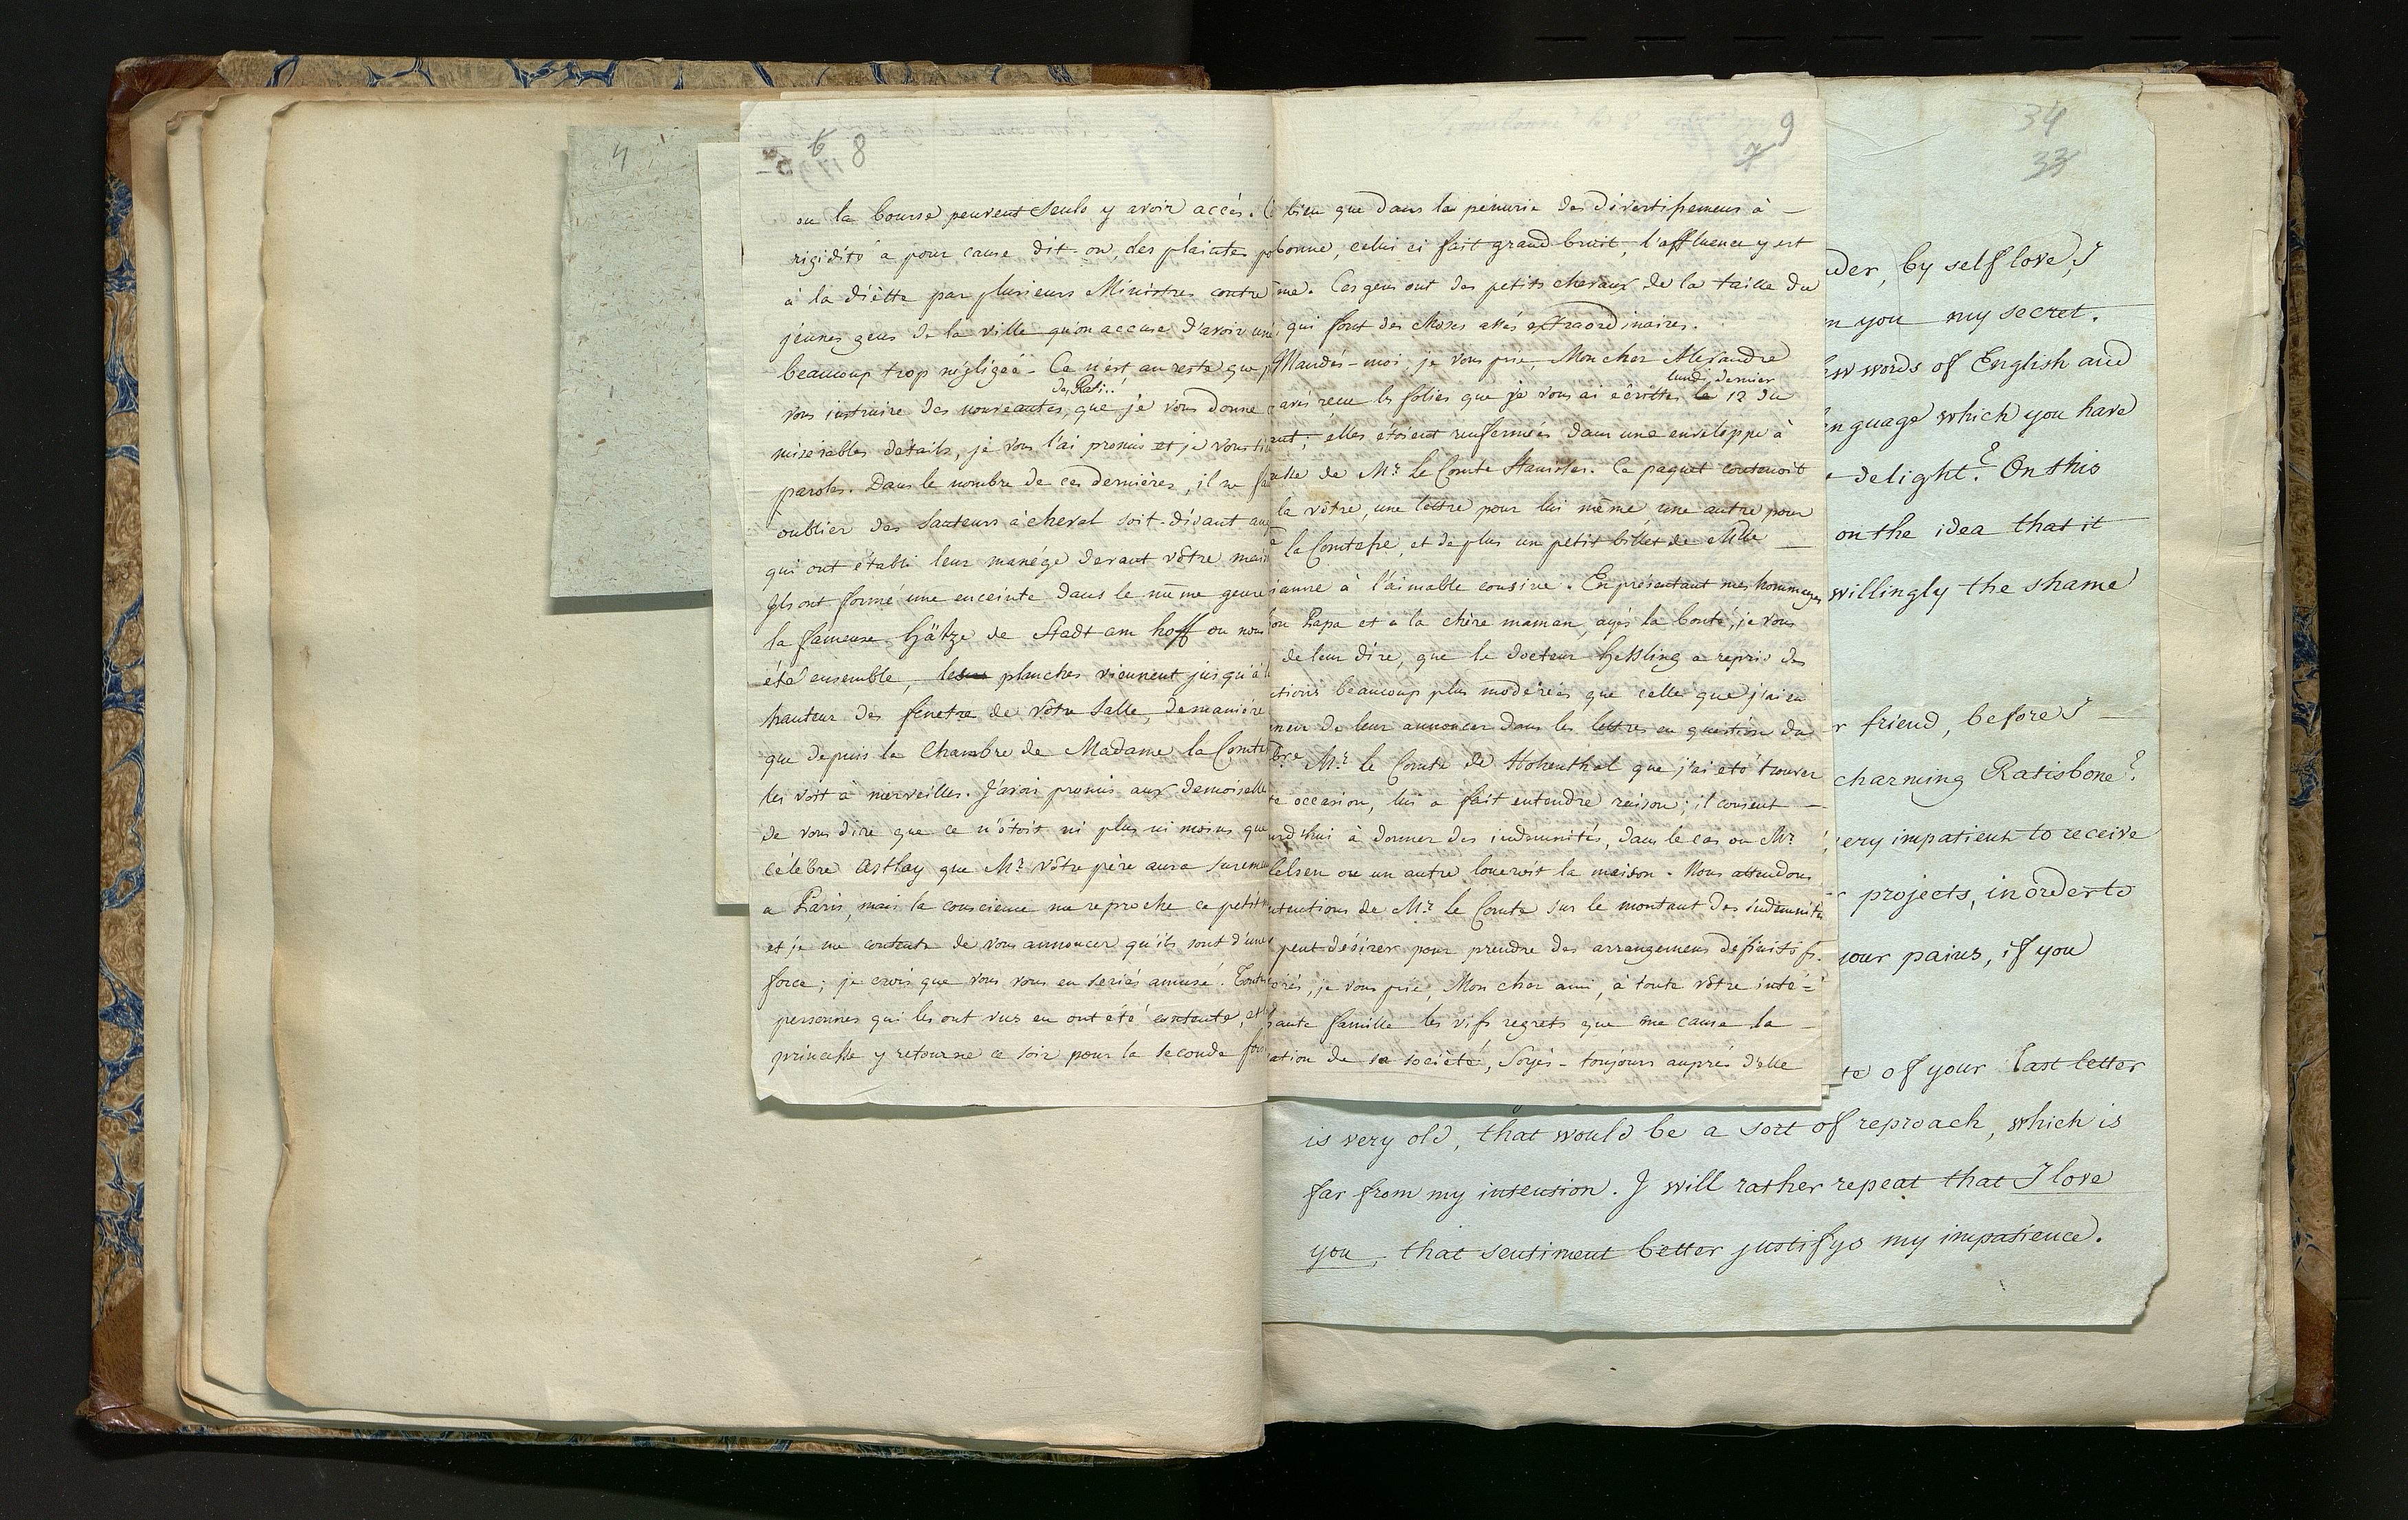 4
6 8
ou la bourse peuvent seuls y avoir accès. C
rigidité a pour cause dit-on, des plaintes po
à la diètte par plusieurs Ministres contre
jeunes gens de la ville qu'on accuse d'avoir un
beaucoup trop négligée - Ce n'est au reste que p
des Rati..!
vous instruire des nouveautes, que je vous donne c
misérables détails, je vous l'ai promis et je vous ti
paroles. Dans le nombre de ces dernières, il ne fa
oublier des Sauteurs à cheval soit-disant an
qui ont établi leur manége devant vôtre mais
Ils ont formé une enceinte dans le même genre
la fameuse Hätze de Stadt am hoff ou nous
été ensemble, les planches viennent jusqu'à l
hauteur des fenetre de vôtre Salle, demanière
que depuis la Chambre de Madame la Comte
les voit à merveilles. J'avoi promis aux demoiselle
de vous dire que ce n'étoit ni plus ni moins que
célébre Astley que Mr. vôtre père aura surement
a Paris, mais la conscience me reproche ce petit
et je me contente de vous annoncer qu'ils sont d'une
force; je crois que vous vous en seriés amusé. Toutes
personnes qui les ont vus en ont été contents, et
princesse y retourne ce soir pour la seconde fois
9
7
bien que dans la pénurie des divertissemens à -
bonne, celui ci fait grand bruit, l'affluence y est
me. Ces gens ont des petits chevaux de la taille du
qui font des choses assés extraordinaires.
Mandés-moi je vous prie, Mon cher Alexandre
lundi dernier
avés recu les folies que je vous ai écrittes le 12 du
ant; elles étoient renfermées dans une enveloppe à
resse de Mr. le Comte Stanislas. Ce paquet contenoit
la vôtre, une lettre pour lui même une autre pour
la Comtesse, et de plus un petit billet de Mlle -
ianne à l'aimable cousine. En présentant mes hommages
on Papa et à la chère maman, ayés la bonté, je vous
de leur dire, que le docteur Hessling a repris des
ntions beaucoup plus modérées que celle que j'ai eu
neur de leur annoncer dans les lettres en question du
bre. Mr. le Comte de Hohenthal que j'ai eté trouver
te occasion, lui a fait entendre raison; il consent -
urd'hui à donner des indemnités, dans le cas ou Mr.
lelsen ou un autre loueroit la maison. Nous attendons
ntentions de Mr. le Comte sur le montant des indemnités
peut désirer pour prendre des arrangemens definitifs.
orés, je vous prie, Mon cher ami, à toute vôtre inté-
sante famille les vifs regrets que me cause la -
ation de sa société, Soyés-toujours auprés d'elle
34
33
der, by self love, I
m you my secret.
ew words of English and
nguage which you have
delight? On this
on the idea that it
willingly the shame
r friend, before I -
charming Ratisbone?
very impatient to receive
r projects, in order to
your pains, if you
te of your last letter
is very old, that would be a sort of reproach, which is
far from my intension. I will rather repeat that I love
you, that sentiment better justifys my impatience.